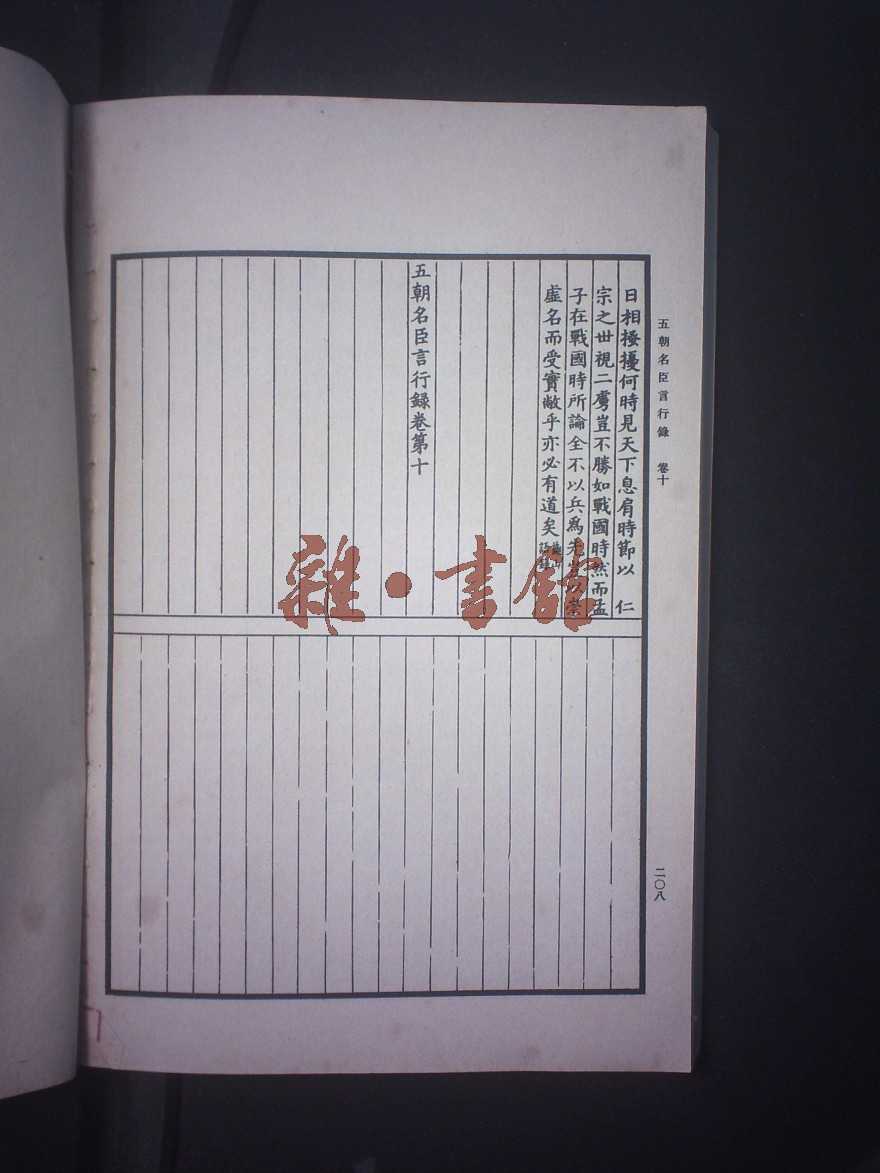 五朝名臣言行錄　卷十
日相擾擾何時見天下息肩時節以　仁
宗之世視二虜豈不勝如戰國時然而孟
子在戰國時所論全不以兵爲先豈以崇
虛名而受實敝乎亦必有道矣
五朝名臣言行録卷第十
二〇八
雜·書館